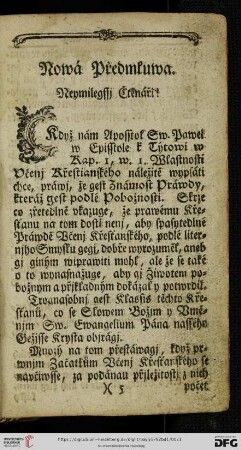 Nowá Předmluwa.
Neymilegssj Čtenáři!
KDyž nám Aposstol Sw. Pawel
w Episstole k Tytowi w
Kap. 1, w. 1. Wlastnosti
Včenj Křestianského náležitě wypsáti
chce, prawj, že gest Známost Prawdy,
kteráž gest podlé Pobožnosti. Skrze
co zřetedlně vkazuge, že prawému Kře-
stanu na tom dosti nenj, aby spasytedlné
Prawdě Včenj Křestanského, podlé liter-
njho Smyslu gegj, dobře wyrozuměl, aneb
gj giným wyprawiti mohl, ale že se také
o to wynasnažuge, aby gj Žiwotem po-
božným a přjkladným dokázal y potwrdil.
Trognásobnj gest Klassys těchto Kře-
stanů, co se Slowem Božjm y Vmě-
njm Sw. Ewangelium Pána nasseho
Gežjsse Krysta objragj.
Mnozý na tom přestáwagj, když pr-
wnjm Začátkům Včenj Křestanského se
naučiwsse, za podánau přjležitostj z nich
)( 5 počet
DFG